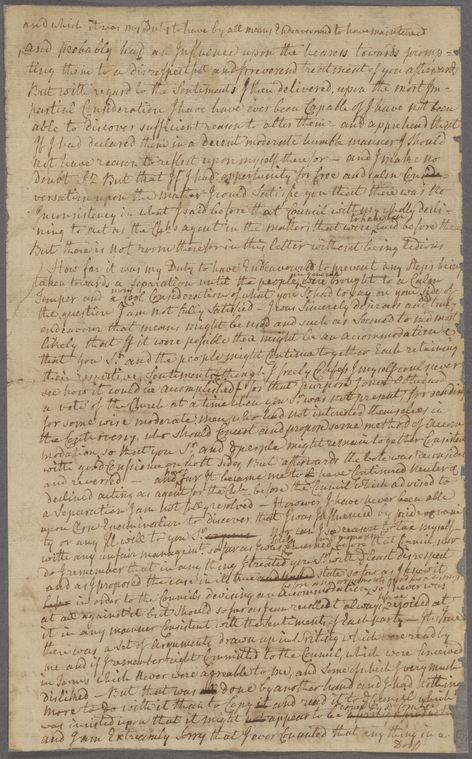 and which it was my Duty to have by all means Endeavoured to have maintained
and probably had an Influence upon the hearers towards promp-
ting them to a disrespectful and irreverend treatment of you afterwards
But with regard to the Sentiments I then delivered, upon the most Im-
partial Consideration I have have ever been Capable of I have not been
able to discover sufficient reason to alter them - and apprehend that
If I had declared them in a decent moderate humble manner I should
not have reason to reflect upon myself therefor - and I make no
Doubt Sr. But that if I had opportunity for free and calm Con
versation upon the matter I could Satisfie you that there was No
Inconsistency in what I said before that Council with my wholly decli-
to have
ning to act as the Chhs agent in the matters that were laid before them
But there is not room therefor in this letter without being tedious
How far it was my Duty to have Endeavoured to prevent any Steps being
taken towards a Separation until the people were brought to a Calm
Temper and a Cool Consideration of what you Sr had to say on your side of
the question I am not fully Satisfied - I was Sincerely desirous and
endeavour that means might be used and such as Seemed to me most
likely that If it were possible there might be an Accommodation
that you Sr. and the people might Continue together Each retaining
their respective Sentiments though I freely Confess I myself could never
see how it could be Accomplished for that purpose I once Obtained
a vote of the Church at a time when you Sr was not present for sending
for some were moderate men who had not interested themselves in
the Controversy, who should Consert and propose some method of Accom-
modation so that you Sr. and people might remain together Consistent
with good Conscience on both sides, But afterwards the vote was reconsidered
and reversed - and how far it became me to have Continued Neuter &
declined acting as agent for the Chh before the Council which advised to
a Separation I am not fully resolved - However I have never been able
upon Examination to discover that I was Influenced by prejudice
ty or any Ill will to you Sr nor can I see reason to Tax myself
with any unfair management so far as I was Concerned before that Council nor
do I remember that in any thing I treated you Sr. with the least disrespect
and as I proposed the case in its true state so far as I knew it
in order to the Councils devising an Accommodation, so I never was
at all against it but should so far as I can recollect always rejoiced at
it in any manner Consistent with the Sentiments of Each party - It is true
there was a set of Arguments drawn up in Writing which were read by
me and if I remember right Committed to the Council, which were conceived
in Terms which Never were agreeable to me, and Some of which I very much
Disliked - But that was done by another hand and I had nothing
more to do with it than to Copy it and read it to the Council which
was insisted upon that it might appear to be
and I am Extreamly Sorry that I ever Consented that any thing in a
Dress